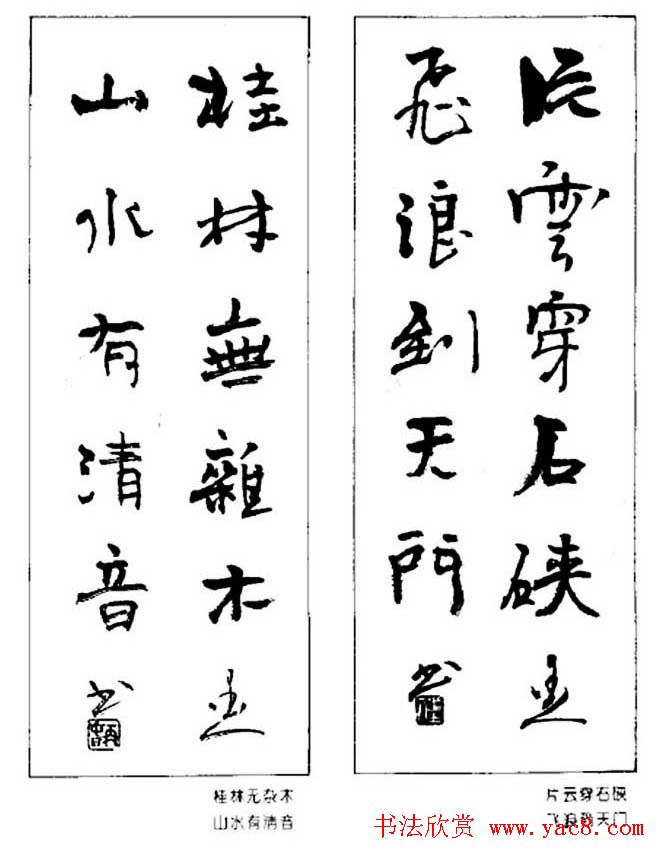 片雲穿石硤
飛浪到天門
书
桂林無雜木
山水有清音
书
片云穿石硖
飞浪到天门
桂林无杂木
山水有清音
书法欣赏 www.yac8.com